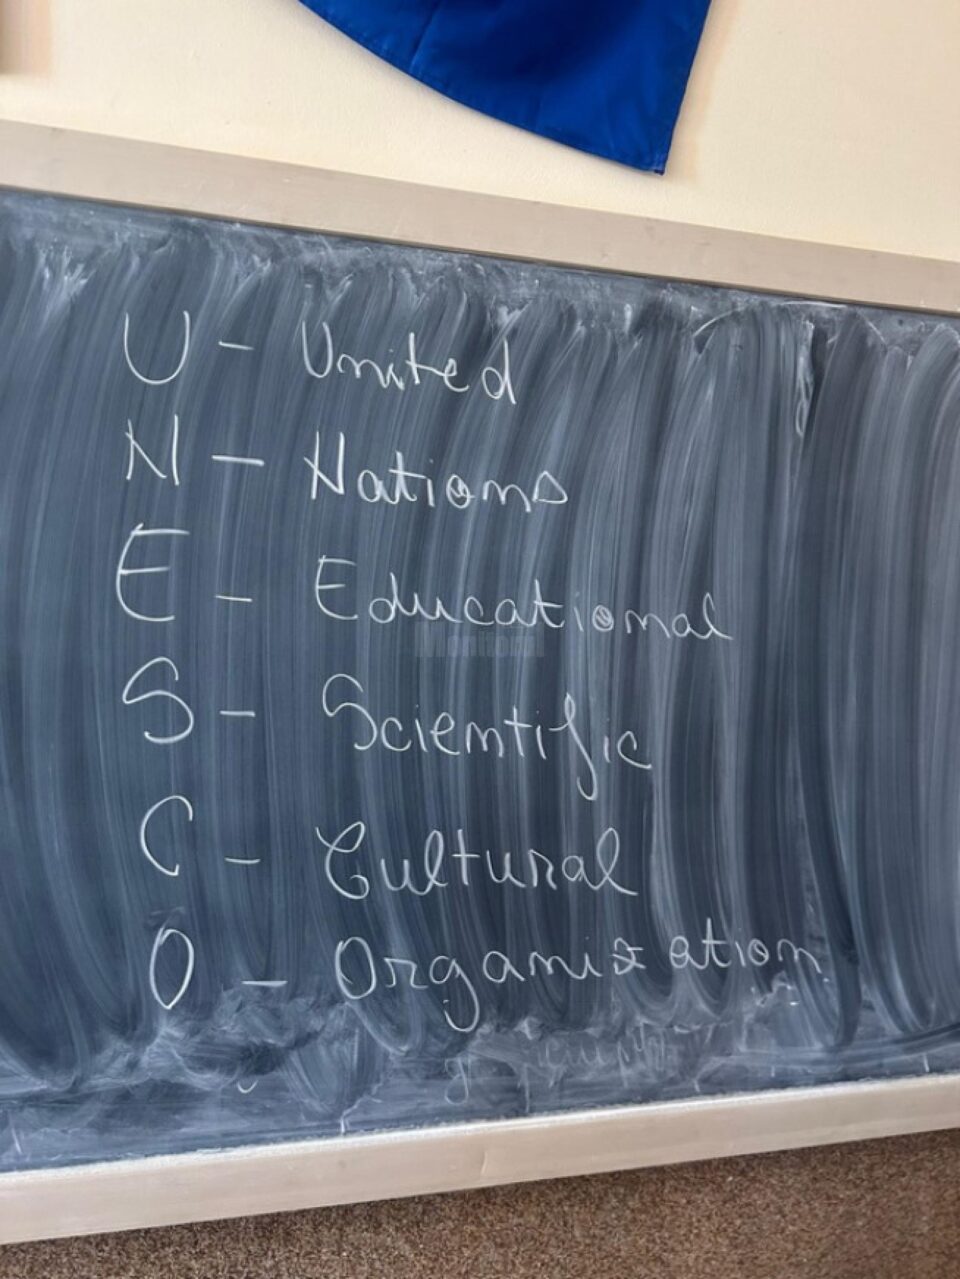 U - United
N - Nations
E - Educational
S - Scientific
C - Cultural
O - Organization